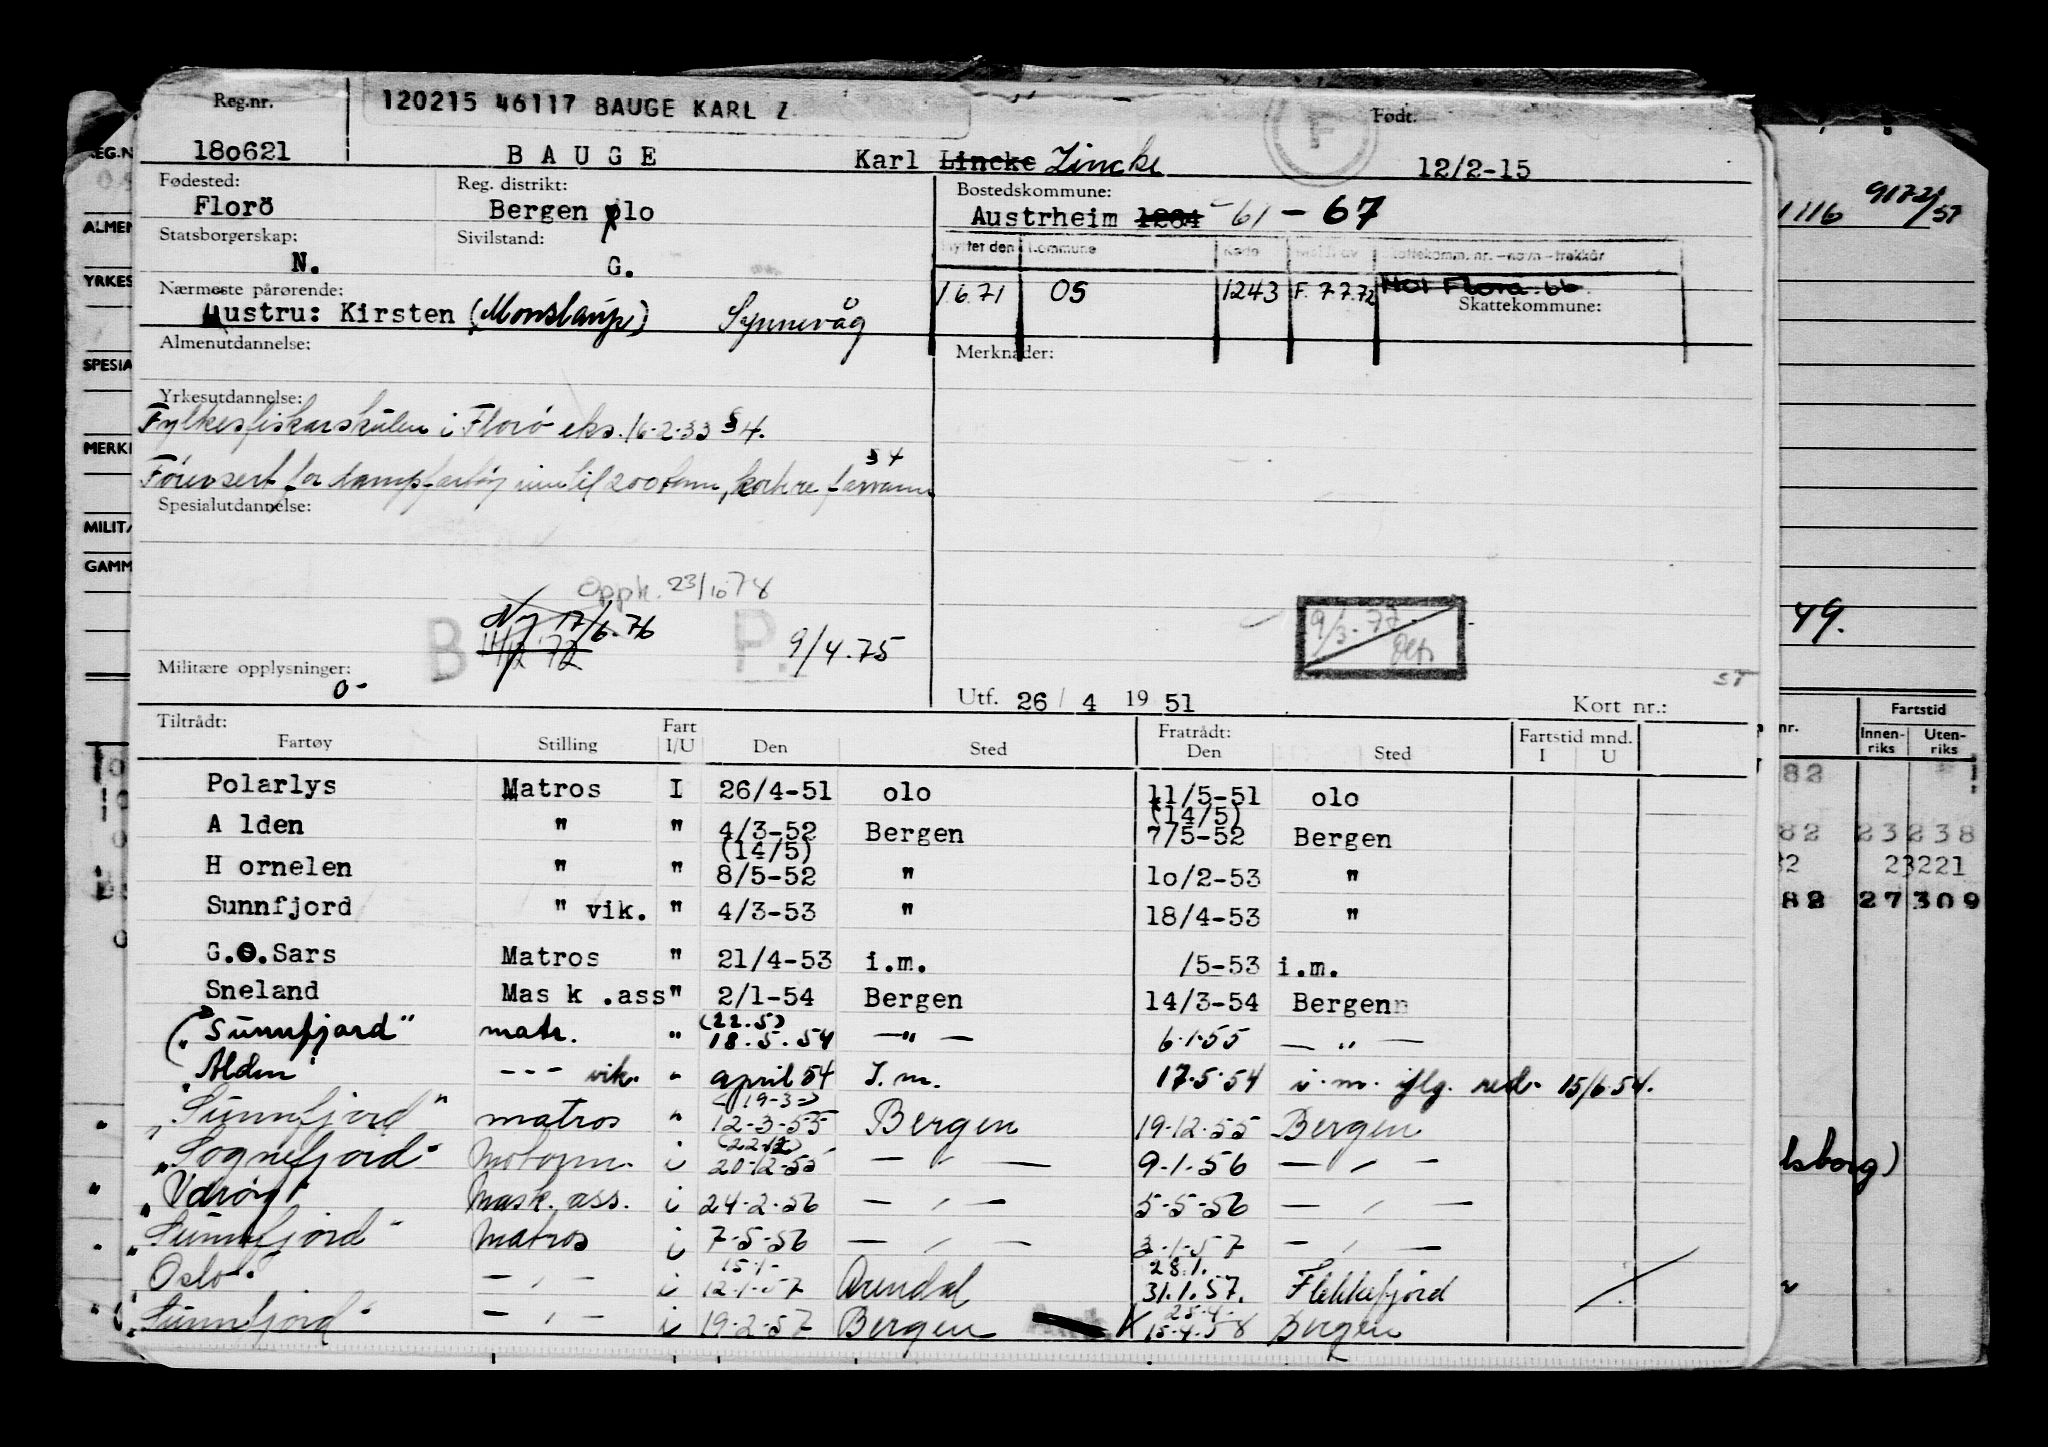 Reg.nr.
120215 46117 BAUGE KARL Z
F
Født:
180621 BAUGE Karl Lincke Zincke 12/2-15
Fødested: Reg. distrikt: Bostedskommune:
Florö Bergen olo Austrheim 1264 61 - 67
Statsborgerskap: Sivilstand:
N. G.
Flytter den Kommune Kode Meldt av Skattekomm. nr. - navn - trekkår
1 6.71 OS 1243 F. 7 7.72 1401 Flora 66
Nærmeste pårørende: Skattekommune:
Hustru: Kirsten (Monslaup) Synnevåg
Almenutdannelse: Merknader:
Yrkesutdannelse:
Fylkesfiskarskulen i Florö eks. 16.2.33 § 4.
§ 4
Förersert for dampfartöy inntil 200 tonn, kortere farvann
Spesialutdannelse:
Oppk. 23/10 78
Ny 17/6.76
B 11/12 72 P. 9/4.75
9/3-77
Militære opplysninger:
0-
ST
Utf. 26 / 4 19 51 Kort nr.:
Tiltrådt: Fratrådt:
Fartøy Stilling Fart I/U Den Sted Den Sted Fartstid mnd. I U
Polarlys Matros I 26/4-51 olo 11/5-51 olo
(14/5)
A lden " " 4/3-52 Bergen 7/5-52 Bergen
(14/5)
H ornelen " " 8/5-52 " 1o/2-53 "
Sunnfjord " vik. " 4/3-53 " 18/4-53 "
G.O.Sars Matros " 21/4-53 i.m. /5-53 i.m.
Sneland Mas k .ass " 2/1-54 Bergen 14/3-54 Bergen
(22.5)
"Sunnfjord" matr. " 18.5.54 — " — 6.1.55 — " —
"Alden" --- vik. " april 54 I.m. 17.5.54 i.m. iflg. red. 15/6 54.
(19-3)
"Sunnfjord" matros " 12-3-55 Bergen 19-12-55 Bergen
(22-12)
"Sognefjord" Motorm. i 20-12-55 — " — 9.1.56 — " —
"Vdröy" Mask. ass. i 24-2-56 — " — 5-5-56 — " —
"Sunnfjord" Matros i 7-5-56 — " — 3-1-57 — " —
15.1- 28.1.
Oslo" — " — i 12.1.57 Arendal 31.1.57. Flekkefjord
25.4.
"Sunnfjord" — " — i 19-2-57 Bergen 15-4.58 Bergen
REG.N
ALMEN
YRKES
SPESIA
MERK
MILIT
GAMM
1116 917-21/ST
49.
nr. Fartstid
Innen- riks Uten- riks
82
82 23 238
23221
82 27 309
lsborg)